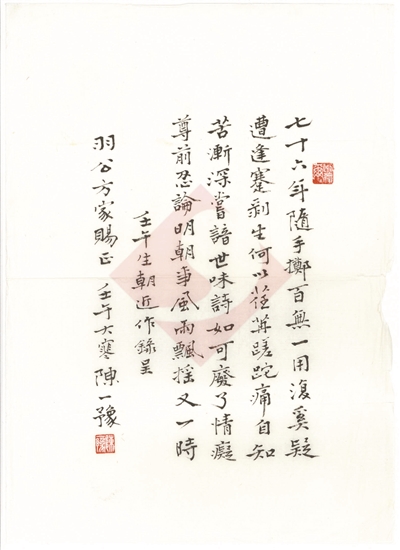 七十六年隨手擲百無一用復奚疑
遭逢蹇剝生何以荏苒蹉跎痛自知
苦漸深嘗諳世味詩如可廢了情癡
尊前忍論明朝事風雨飄摇又一時
壬午生朝近作錄呈
羽公方家賜正 壬午大寒陳一豫